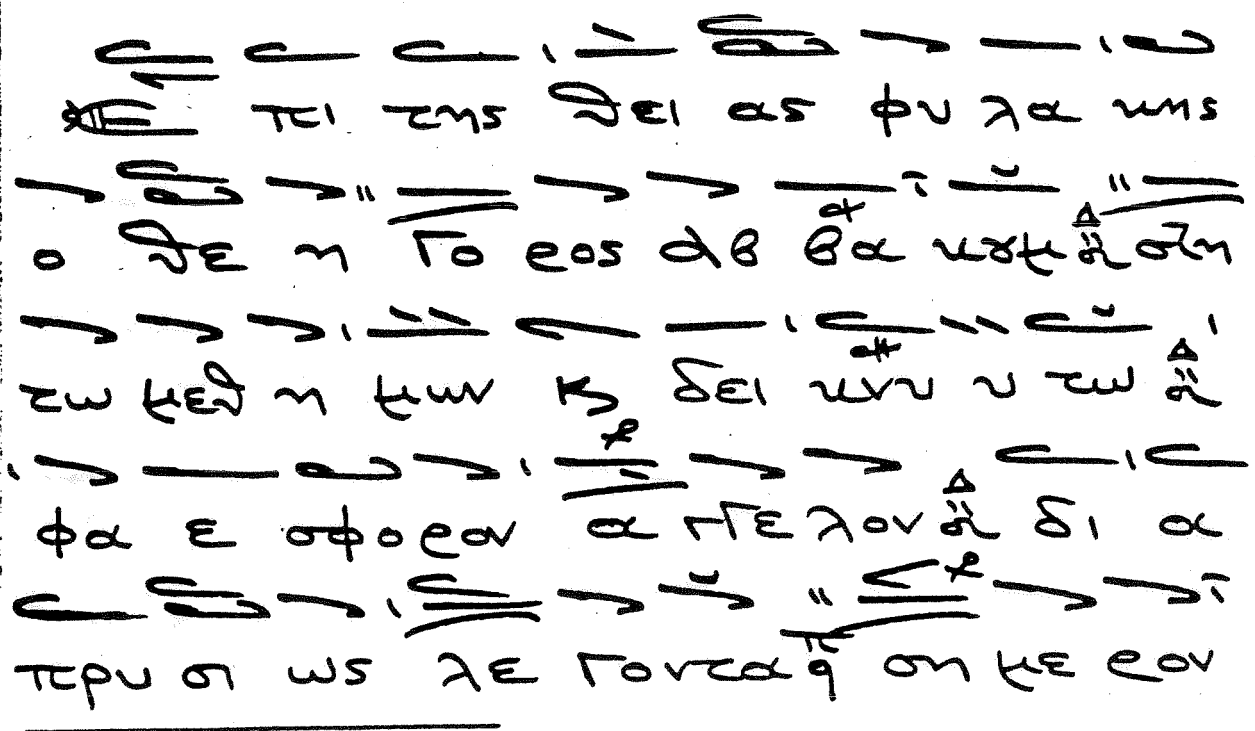 Ε πι της θει ας φυ λα κης
ο θε η γο ρος αβ βα κȣμ στη
τω μεθ η μων ϗ δει κνυ υ τω
φα ε σφο ρον α γγε λον δι α
πρυ σι ως λε γον τα ση με ρον